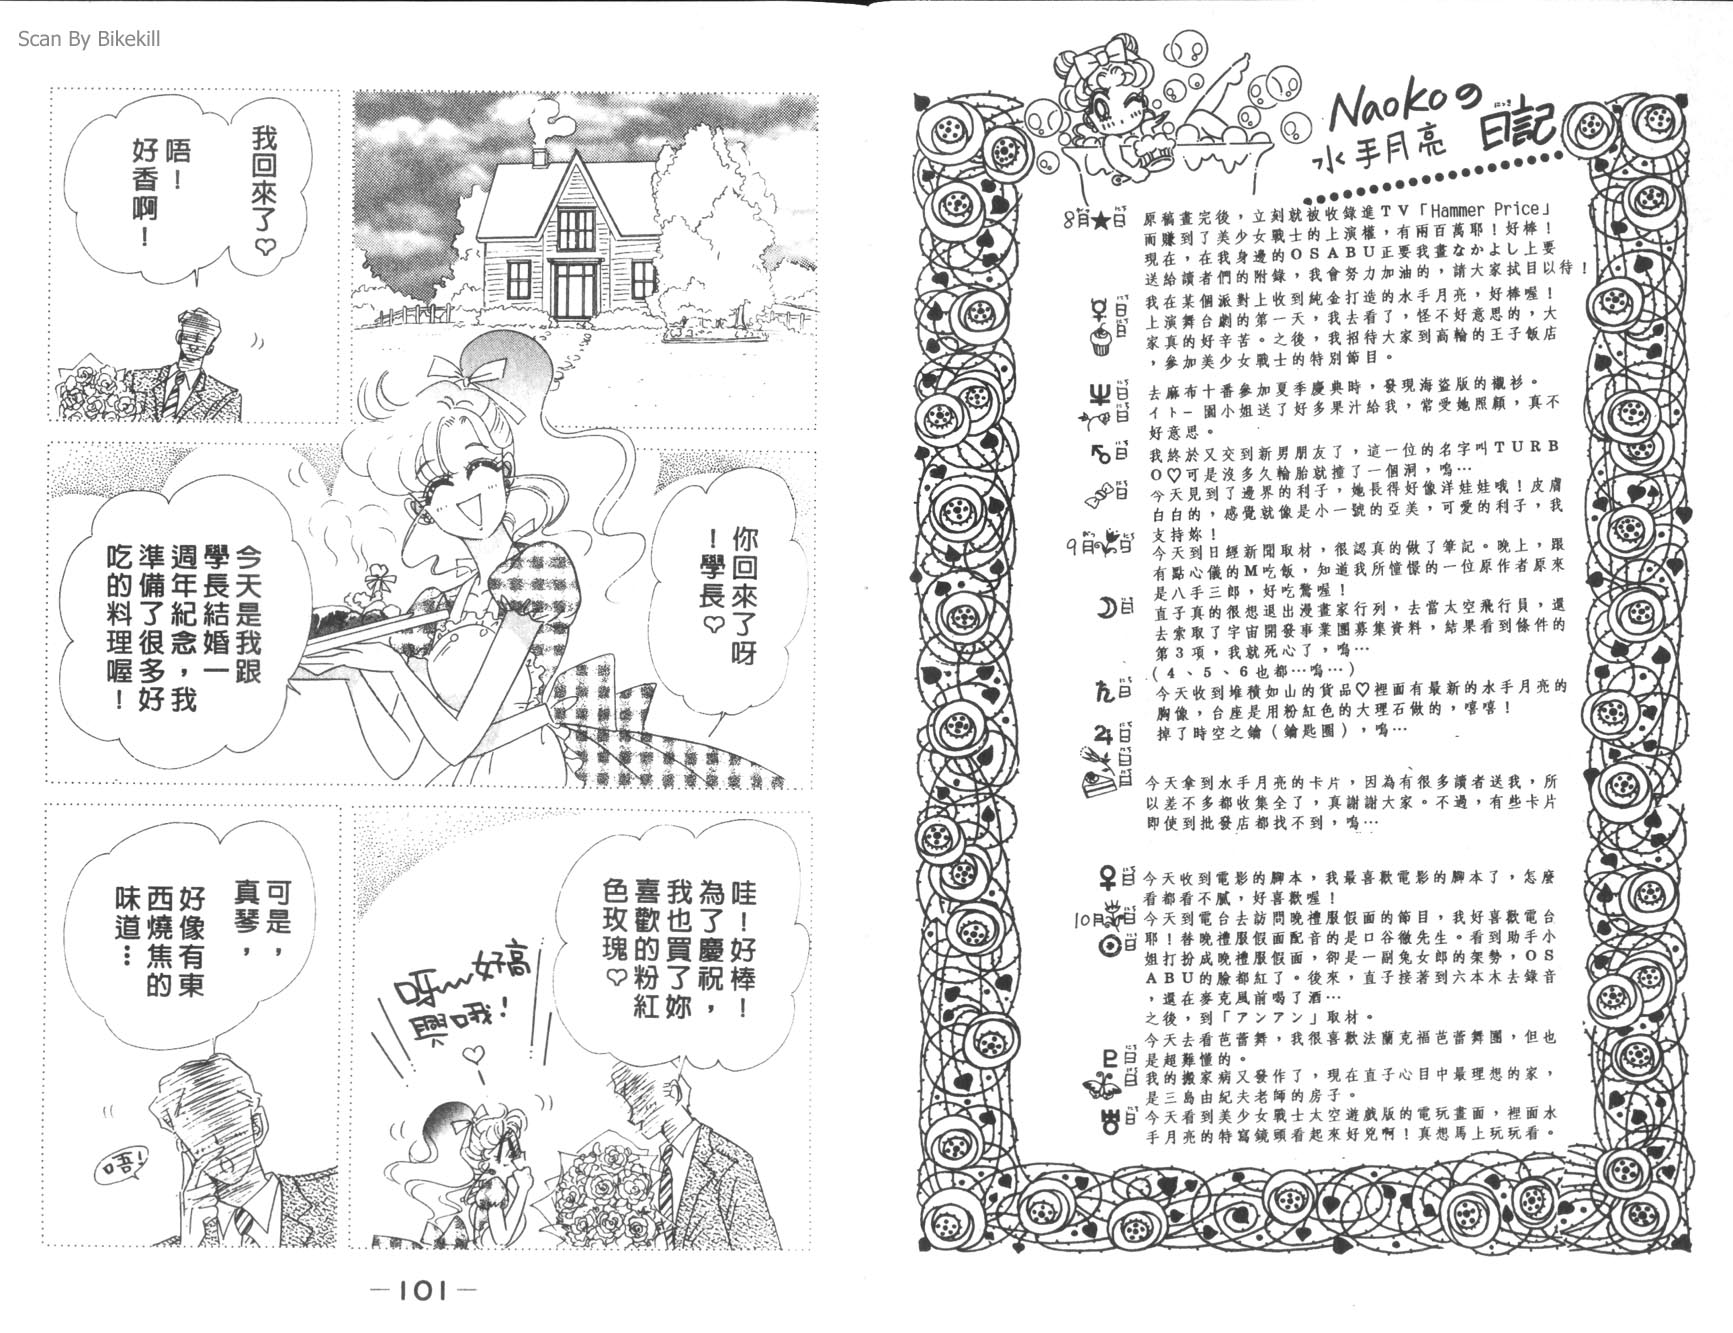 Scan By Bikekill
Naokoの
水手月亮 日記
8月★日
原稿畫完後，立刻就被收錄進TV「Hammer Price」
而賺到了美少女戰士的上演權，有兩百萬耶！好棒！
現在，在我身邊的OSABU正要我畫なかよし上要
送給讀者們的附錄，我會努力加油的，請大家拭目以待！
☿日
我在某個派對上收到純金打造的水手月亮，好棒喔！
日
上演舞台劇的第一天，我去看了，怪不好意思的，大
家真的好辛苦。之後，我招待大家到高輪的王子飯店
，參加美少女戰士的特別節目。
日
去麻布十番參加夏季慶典時，發現海盜版的襯衫。
日
イトー園小姐送了好多果汁給我，常受她照顧，真不
好意思。
♂日
我終於又交到新男朋友了，這一位的名字叫TURB
O♡可是沒多久輪胎就撞了一個洞，嗚…
日
今天見到了邊界的利子，她長得好像洋娃娃哦！皮膚
白白的，感覺就像是小一號的亞美，可愛的利子，我
支持妳！
9月日
今天到日經新聞取材，很認真的做了筆記。晚上，跟
有點心儀的M吃飯，知道我所憧憬的一位原作者原來
是八手三郎，好吃驚喔！
☽日
直子真的很想退出漫畫家行列，去當太空飛行員，還
去索取了宇宙開發事業團募集資料，結果看到條件的
第3項，我就死心了，嗚…
(4、5、6也都…嗚…)
日
今天收到堆積如山的貨品♡裡面有最新的水手月亮的
胸像，台座是用粉紅色的大理石做的，嘻嘻！
♃日
掉了時空之鑰（鑰匙圈），嗚…
日
今天拿到水手月亮的卡片，因為有很多讀者送我，所
以差不多都收集全了，真謝謝大家。不過，有些卡片
即使到批發店都找不到，嗚…
♀日
今天收到電影的腳本，我最喜歡電影的腳本了，怎麼
看都看不膩，好喜歡喔！
10月日
今天到電台去訪問晚禮服假面的節目，我好喜歡電台
☉日
耶！替晚禮服假面配音的是口谷徹先生。看到助手小
姐打扮成晚禮服假面，卻是一副兔女郎的架勢，OS
ABU的臉都紅了。後來，直子接著到六本木去錄音
，還在麥克風前喝了酒…
之後，到「アンアン」取材。
今天去看芭蕾舞，我很喜歡法蘭克福芭蕾舞團，但也
日
是超難懂的。
日
我的搬家病又發作了，現在直子心目中最理想的家，
是三島由紀夫老師的房子。
日
今天看到美少女戰士太空遊戲版的電玩畫面，裡面水
手月亮的特寫鏡頭看起來好兇啊！真想馬上玩玩看。
我回來了♡
唔！
好香啊！
你回來了呀
！學長♡
今天是我跟
學長結婚一
週年紀念，我
準備了很多好
吃的料理喔！
哇！好棒！
為了慶祝，
我也買了妳
喜歡的粉紅
色玫瑰♡
呀～好高
興哦！
♡
可是，
真琴，
好像有東
西燒焦的
味道…
唔！
—101—